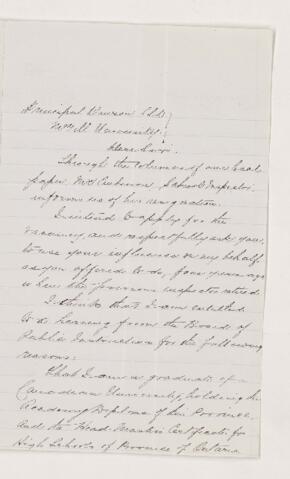 Principal Dawson LLD
McGill University
Dear Sir:
Through the columns of our local
paper, Mr. School Inspector,
informs us of his resignation.
I intend to apply for the
vacancy, and respectfully ask you
to use your influence on my behalf
as you offered to do, four years ago
when the previous inspector retired.
I think that I am entitled
to a hearing from the Board of
Public Instruction for the following
reasons:
That I am a graduate of a
Canadian University, holding the
Academy Diploma of this Province,
and the Head Master Certificate for
High Schools of Province of Ontario